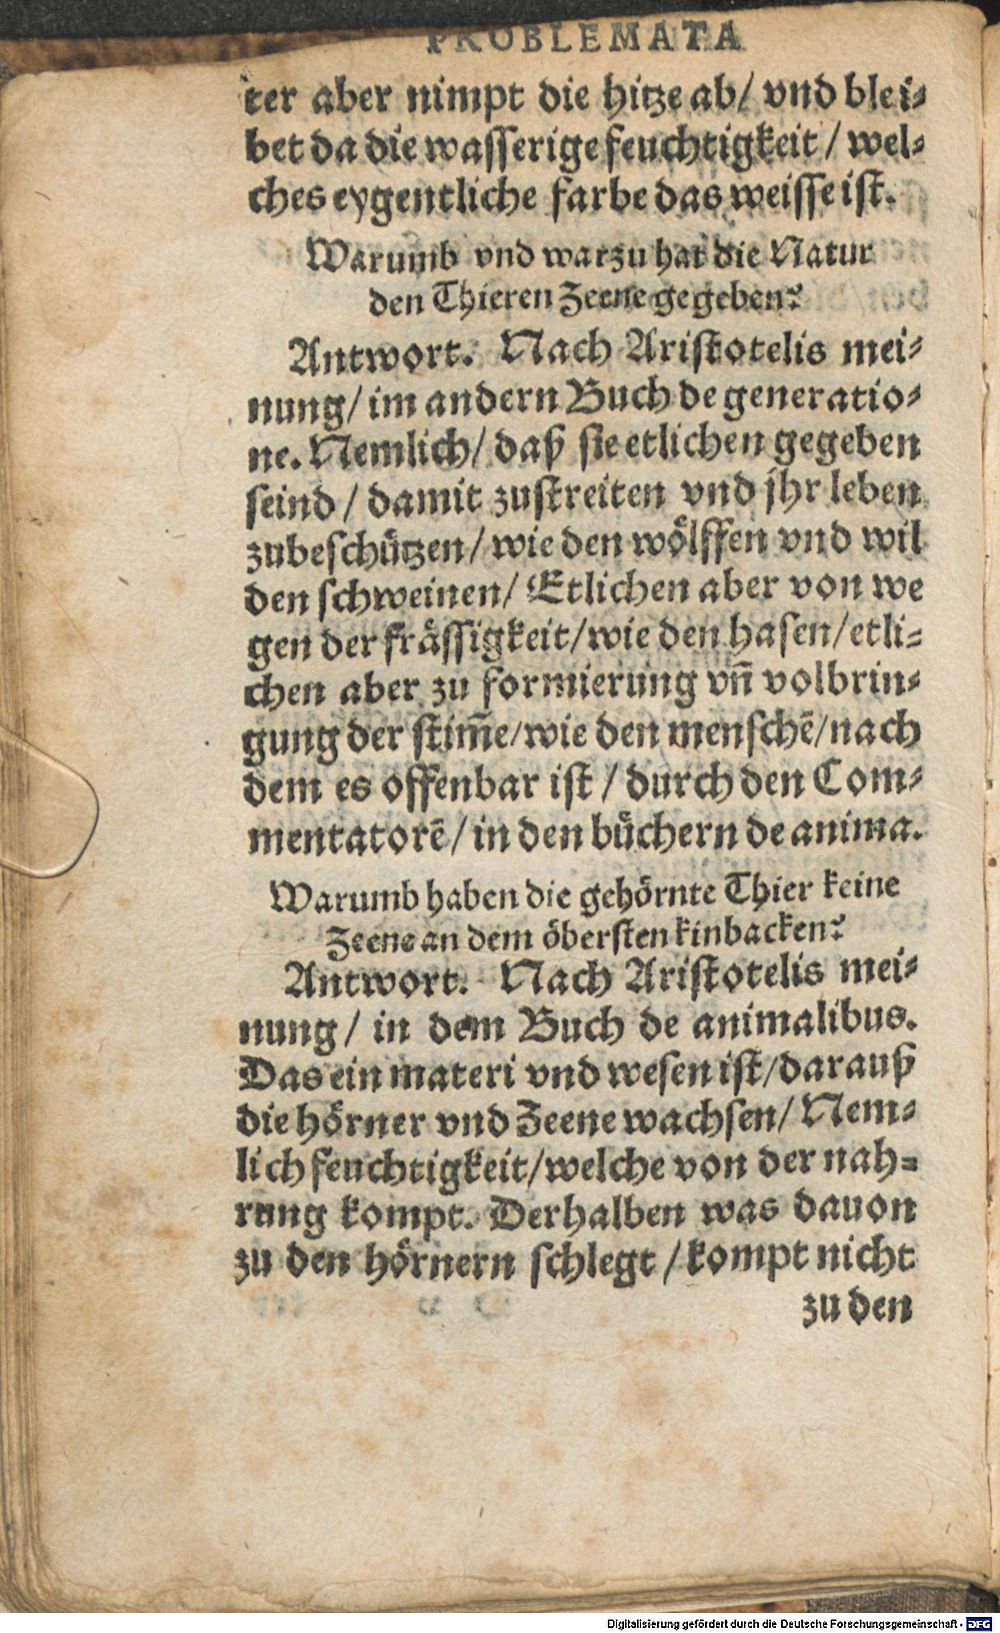 PROBLEMATA
ter aber nimpt die hitze ab/ vnd blei⸗
bet da die wasserige feuchtigkeit / wel⸗
ches eygentliche farbe das weisse ist.
Warumb vnd warzu hat die Natur
den Thieren Zeene gegeben?
Antwort. Nach Aristotelis mei⸗
nung/ im andern Buch de generatio⸗
ne. Nemlich/ daß sie etlichen gegeben
seind / damit zustreiten vnd jhr leben
zubeschützen/ wie den wölffen vnd wil
den schweinen/ Etlichen aber von we
gen der frässigkeit/wie den hasen/etli⸗
chen aber zu formierung vn̄ volbrin⸗
gung der stim̄e/wie den menschē/nach
dem es offenbar ist / durch den Com⸗
mentatorē/ in den büchern de anima.
Warumb haben die gehörnte Thier keine
Zeene an dem öbersten kinbacken?
Antwort. Nach Aristotelis mei⸗
nung/ in dem Buch de animalibus.
Das ein materi vnd wesen ist/darauß
die hörner vnd Zeene wachsen/ Nem⸗
lich feuchtigkeit/welche von der nah⸗
rung kompt. Derhalben was dauon
zu den hörnern schlegt /kompt nicht
zu den
Digitalisierung gefördert durch die Deutsche Forschungsgemeinschaft - DFG